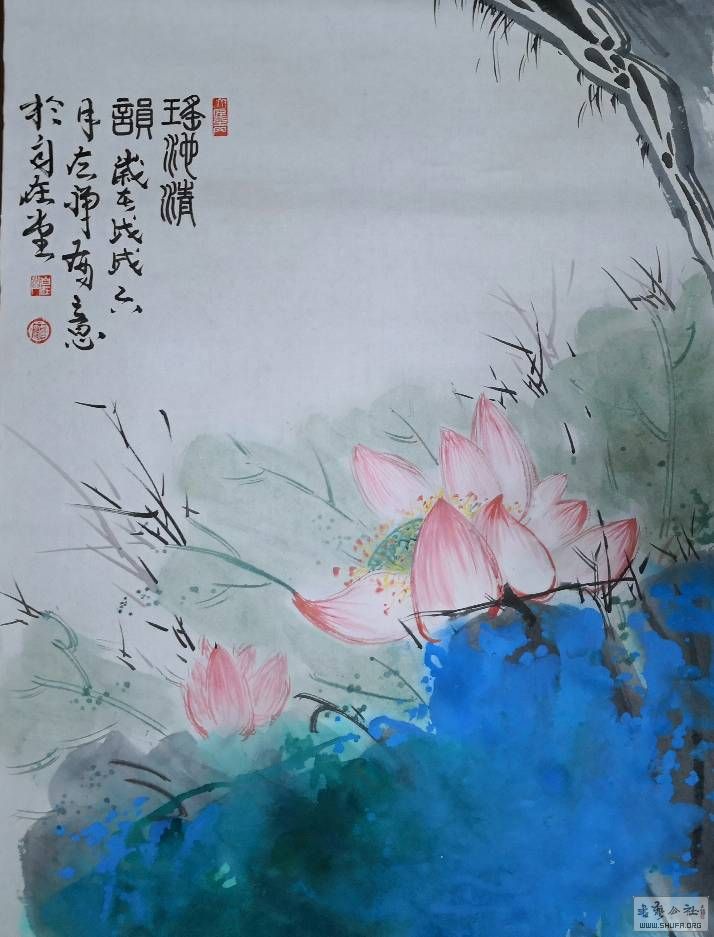 瑶池清
韻 歲在戊戌六
月 写意
於自在堂
書艺公社
WWW.SHUFA.ORG